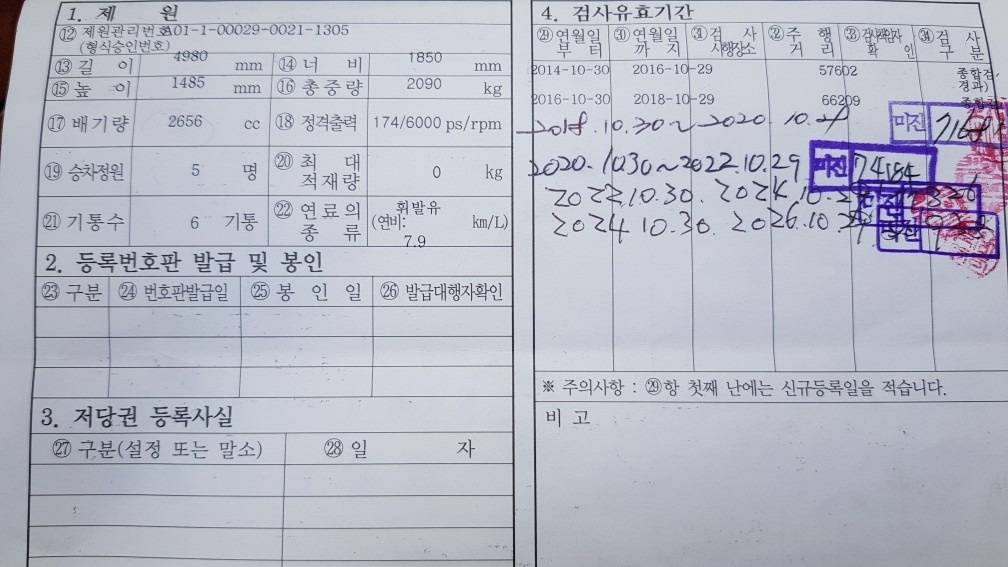 1. 제 원
⑫ 제원관리번호 A01-1-00029-0021-1305
(형식승인번호)
⑬ 길 이 4980 mm ⑭ 너 비 1850 mm
⑮ 높 이 1485 mm ⑯ 총중량 2090 kg
⑰ 배기량 2656 cc ⑱ 정격출력 174/6000 ps/rpm
⑲ 승차정원 5 명 ⑳ 최 대 적재량 0 kg
㉑ 기통수 6 기통 ㉒ 연료의 종 류 휘발유 (연비: 7.9 km/L)
2. 등록번호판 발급 및 봉인
㉓ 구분 ㉔ 번호판발급일 ㉕ 봉 인 일 ㉖ 발급대행자확인
3. 저당권 등록사실
㉗ 구분(설정 또는 말소) ㉘ 일 자
4. 검사유효기간
㉙ 연월일 부 터 ㉚ 연월일 까 지 ㉛ 검 사 시행장소 ㉜ 주 행 거 리 ㉝ 확 인 ㉞ 검 사 구 분
2014-10-30 2016-10-29 57602 종합검 경과)
2016-10-30 2018-10-29 66209 종합검
2018.10.30~2020.10.29
2020.10.30~2022.10.29 74184
2022.10.30. 2024.10.29
2024.10.30. 2026.10.29
※ 주의사항 : ㉙항 첫째 난에는 신규등록일을 적습니다.
비 고